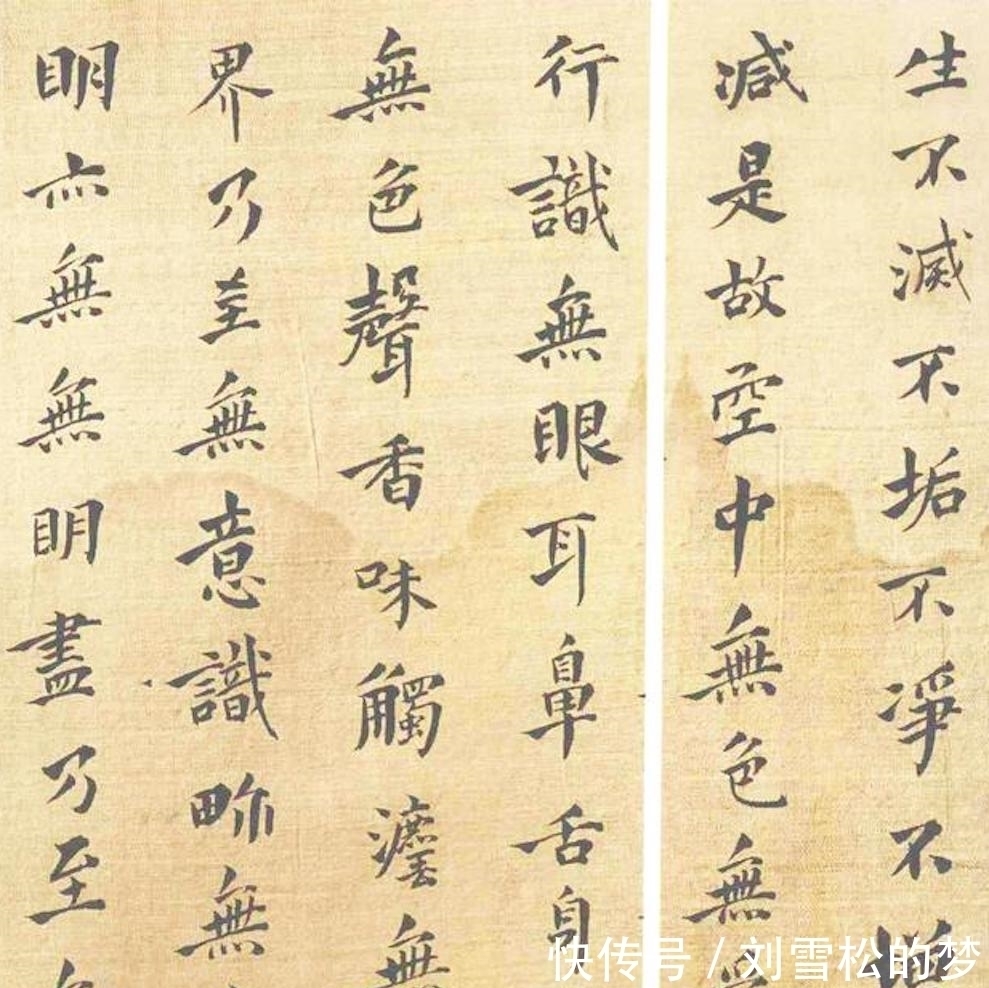 生不滅不垢不凈不
減是故空中無色無
行識無眼耳鼻舌身
無色聲香味觸灋無
界乃至無意識畍無
明亦無無明盡乃至
快传号 / 刘雪松的梦